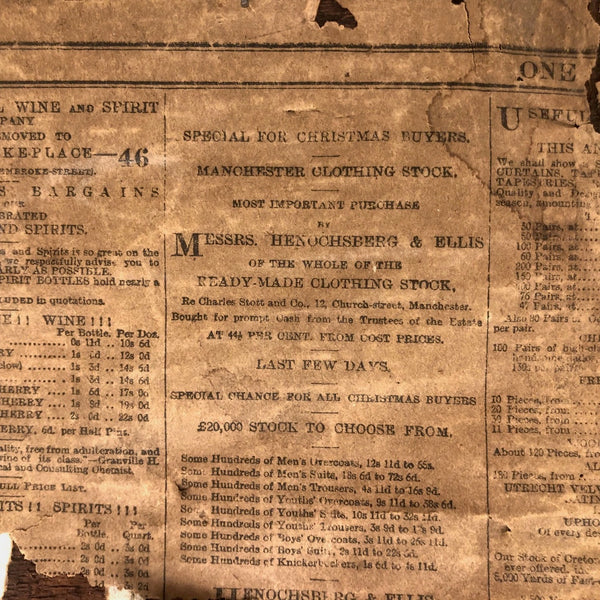 ONE
L WINE AND SPIRIT
MPANY
EMOVED TO
KE-PLACE—46
EMBROKE-STREET).
S BARGAINS
OUR
BRATED
ND SPIRITS.
and Spirits is so great on the
we respectfully advise you to
ARLY AS POSSIBLE.
SPIRIT BOTTLES hold nearly a
CLUDED in quotations.
NE!! WINE!!!
Per Bottle. Per Doz.
0s 11d .. 10s 6d
RY 1s 0d .. 12s 0d
elow) 1s 3d .. 14s 6d
1s 3d .. 14s 6d
HERRY 1s 6d .. 17s 0d
HERRY 1s 9d .. 19s 0d
HERRY 2s 0d .. 22s 0d
ERRY, 6d. per Half Pint.
ality, free from adulteration, and
wine of its class."—Granville H.
cal and Consulting Chemist.
ULL PRICE LIST.
ITS!! SPIRITS!!!
Per Bottle. Per Quart.
SPECIAL FOR CHRISTMAS BUYERS.
MANCHESTER CLOTHING STOCK.
MOST IMPORTANT PURCHASE
BY
MESSRS. HENOCHSBERG & ELLIS
OF THE WHOLE OF THE
READY-MADE CLOTHING STOCK,
Re Charles Stott and Co., 12, Church-street, Manchester.
Bought for prompt Cash from the Trustees of the Estate
AT 44½ PER CENT. FROM COST PRICES.
LAST FEW DAYS.
SPECIAL CHANCE FOR ALL CHRISTMAS BUYERS
£20,000 STOCK TO CHOOSE FROM.
Some Hundreds of Men's Overcoats, 12s 11d to 55s.
Some Hundreds of Men's Suits, 18s 6d to 72s 6d.
Some Hundreds of Men's Trousers, 4s 11d to 16s 9d.
Some Hundreds of Youths' Overcoats, 9s 11d to 38s 6d.
Some Hundreds of Youths' Suits, 10s 11d to 32s 11d.
Some Hundreds of Youths' Trousers, 3s 9d to
Some Hundreds of Boys' Overcoats, 3s 11d to 25s 11d.
Some Hundreds of Boys' Suits, 2s 11d to 22s 6d.
Some Hundreds of Knickerbockers, 1s 6d to 4s 11d.
HENOCHSBERG & ELLIS
USEFUL
THIS AN
We shall show a S
CURTAINS, TAP
TAPESTRIES,
Quality and Des
season, amounting
30 Pairs, at
50 Pairs, at
100 Pairs, at
60 Pairs, at
200 Pairs, at
145 Pairs, at
100 Pairs, at
76 Pairs, at
47 Pairs, at
Also 80 Pairs of
per pair.
CHE
160 Pairs of
handsome
per pair.
FRE
10 Pieces, from
20 Pieces, from
30 Pieces, from
11 Pieces, from
About 120 Pieces, fr
AL
150 Pieces, from
UTRECHT VELV
UPHO
Of every de
Our Stock of Creton
5,000 Yards of Fast-